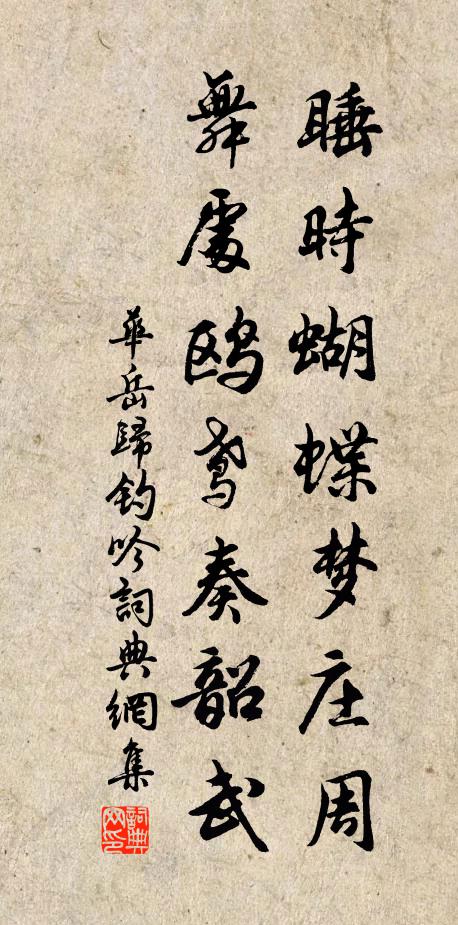 睡時蝴蝶梦庄周
舞處鸥鸢奏韶武
華岳歸釣吟詞典網集
詞典网印